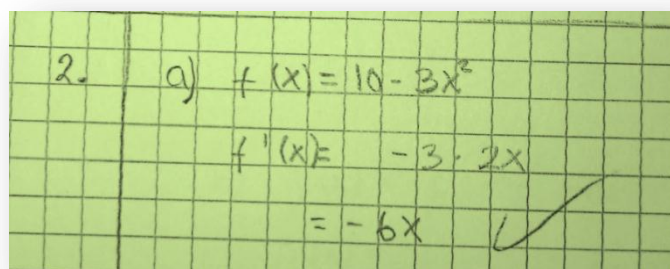 2. a) f(x) = 10 - 3x²
f'(x) = - 3 · 2x
= - 6x